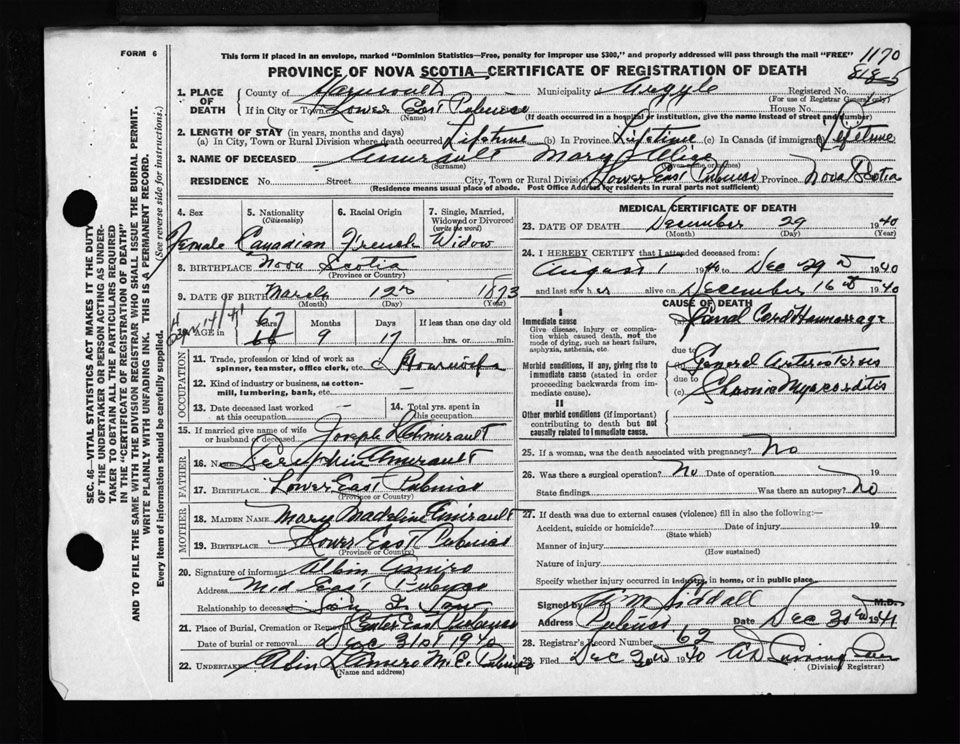 FORM 6
This form if placed in an envelope, marked "Dominion Statistics—Free, penalty for improper use $300," and properly addressed will pass through the mail "FREE"
1170
PROVINCE OF NOVA SCOTIA—CERTIFICATE OF REGISTRATION OF DEATH
1. PLACE OF DEATH
County of Yarmouth Municipality of Argyle Registered No.
(For use of Registrar General only)
If in City or Town Lower East Pubnico House No.
(Name) (If death occurred in a hospital or institution, give the name instead of street and number)
2. LENGTH OF STAY (in years, months and days)
(a) In City, Town or Rural Division where death occurred Lifetime (b) In Province Lifetime (c) In Canada (if immigrant) Lifetime
3. NAME OF DECEASED Amirault Mary Alice
(Surname) (Given name or names)
RESIDENCE No. Street City, Town or Rural Division Lower East Pubnico Province Nova Scotia
(Residence means usual place of abode. Post Office Address for residents in rural parts not sufficient)
SEC. 46—VITAL STATISTICS ACT MAKES IT THE DUTY
OF THE UNDERTAKER OR PERSON ACTING AS UNDER-
TAKER TO OBTAIN ALL THE PARTICULARS REQUIRED
IN THE "CERTIFICATE OF REGISTRATION OF DEATH"
AND TO FILE THE SAME WITH THE DIVISION REGISTRAR WHO SHALL ISSUE THE BURIAL PERMIT.
WRITE PLAINLY WITH UNFADING INK. THIS IS A PERMANENT RECORD.
Every item of information should be carefully supplied. (See reverse side for instructions.)
4. Sex
Female
5. Nationality
(Citizenship)
Canadian
6. Racial Origin
French
7. Single, Married,
Widowed or Divorced
(write the word)
Widow
8. BIRTHPLACE Nova Scotia
(Province or Country)
9. DATE OF BIRTH March 12 1873
(Month) (Day) (Year)
10. AGE in
Years Months Days If less than one day old
67
66 9 17 hrs. or min.
OCCUPATION
11. Trade, profession or kind of work as
spinner, teamster, office clerk, etc. Housewife
12. Kind of industry or business, as cotton-
mill, lumbering, bank, etc. —
13. Date deceased last worked
at this occupation —
14. Total yrs. spent in
this occupation
15. If married give name of wife
or husband of deceased Joseph L Amirault
FATHER
16. Name Seraphin Amirault
17. BIRTHPLACE Lower East Pubnico
(Province or Country)
MOTHER
18. MAIDEN NAME Mary Madeline Amirault
19. BIRTHPLACE Lower East Pubnico
(Province or Country)
20. Signature of informant Albin Amiro
Address Mid East Pubnico
Relationship to deceased Son In Law
21. Place of Burial, Cremation or Removal East Pubnico
Date of burial or removal Dec 31st 1940
22. UNDERTAKER Albin L Amiro M. E. Pubnico
(Name and address)
MEDICAL CERTIFICATE OF DEATH
23. DATE OF DEATH December 29 1940
(Month) (Day) (Year)
24. I HEREBY CERTIFY that I attended deceased from:
August 1 1940 to Dec 29 1940
and last saw her alive on December 16 1940
CAUSE OF DEATH
I
Immediate cause
Give disease, injury or complica-
tion which caused death, not the
mode of dying, such as heart failure,
asphyxia, asthenia, etc.
(a) Cord Hemorrage
due to
Morbid conditions, if any, giving rise to
immediate cause (stated in order
proceeding backwards from im-
mediate cause).
(b) General Arteriosclerosis
due to
(c) Chronic Myocarditis
II
Other morbid conditions (if important)
contributing to death but not
causally related to immediate cause.
25. If a woman, was the death associated with pregnancy? No
26. Was there a surgical operation? No Date of operation 19
State findings Was there an autopsy? No
27. If death was due to external causes (violence) fill in also the following:—
Accident, suicide or homicide? Date of injury 19
(State which)
Manner of injury
(How sustained)
Nature of injury
Specify whether injury occurred in industry, in home, or in public place
Signed by A M Siddall M.D.
Address Pubnico Date Dec 30 1941
28. Registrar's Record Number 62
29. Filed Dec 30 1940
(Division Registrar)